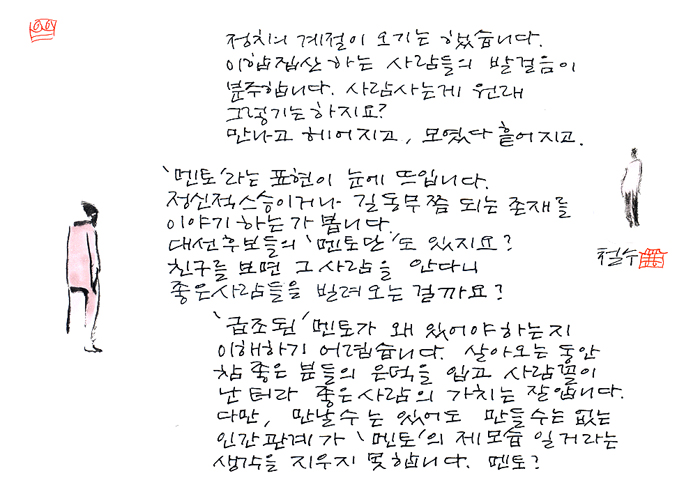 정치의 계절이 오기는 했습니다.
이합집산 하는 사람들의 발걸음이
분주합니다. 사람사는게 원래
그렇기는하지요?
만나고 헤어지고, 모였다 흩어지고.
'멘토'라는 표현이 눈에 뜨입니다.
정신적스승이거나 길동무쯤 되는 존재를
이야기 하는가 봅니다.
대선후보들의 '멘토단'도 있지요?
친구를 보면 그 사람을 안다니
좋은사람들을 빌려 오는 걸까요?
'급조된' 멘토가 왜 있어야하는지
이해하기 어렵습니다. 살아오는 동안
참 좋은 분들의 은덕을 입고 사람꼴이
난 터라 좋은사람의 가치는 잘압니다.
다만, 만날수는 있어도 만들수는 없는
인간관계가 '멘토'의 제모습 일거라는
생각을 지우지 못합니다. 멘토?
철수